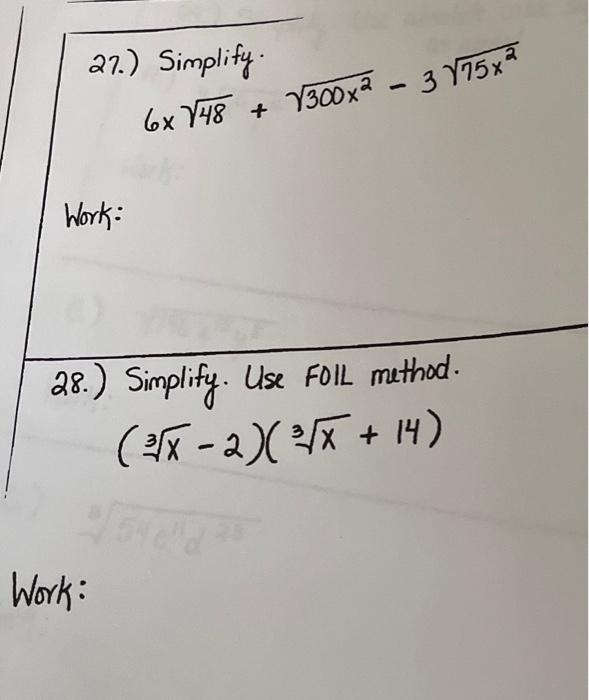 27.) Simplify.
6x √48 + √300x² - 3 √75x²
Work:
28.) Simplify. Use FOIL method.
(∛x - 2)(∛x + 14)
Work: